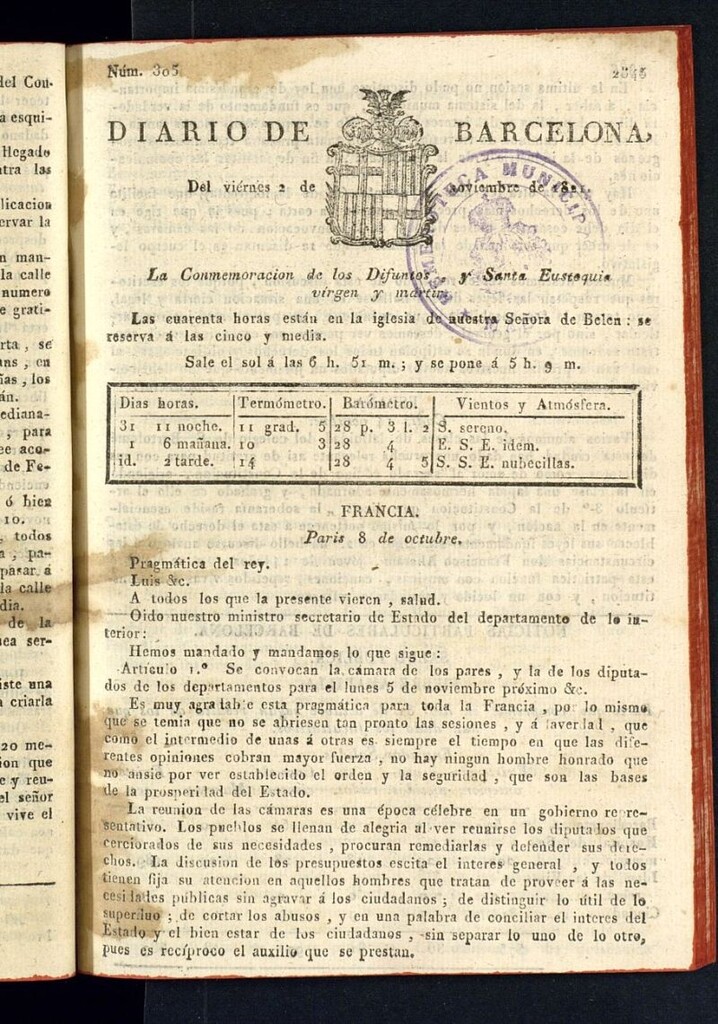 del Con-
a esqui-
llegado
tra las
licacion
ervar la
n man-
la calle
numero
e grati-
rta, se
ans, en
ñas, los
án.
ediana-
, para
ee aco-
de Fe-
ó bien
10.
, todos
a, pa-
pasar á
la calle
dia.
de la
sea ser-
iste una
a criarla
20 me-
ion que
e y reu-
el señor
vive el
Núm. 305
2645
DIARIO DE BARCELONA,
Del viérnes 2 de noviembre de 1821.
HEMEROTECA MUNICIPAL
La Conmemoracion de los Difuntos, y Santa Eustoquia
vírgen y martir.
Las cuarenta horas están en la iglesia de nuestra Señora de Belen: se
reserva á las cinco y media.
Sale el sol á las 6 h. 51 m.; y se pone á 5 h. 9 m.
Dias horas. Termómetro. Barómetro. Vientos y Atmósfera.
31 11 noche. 11 grad. 5 28 p. 3 l. 2 S. sereno.
1 6 mañana. 10 3 28 4 E. S. E. idem.
id. 2 tarde. 14 28 4 5 S. S. E. nubecillas.
FRANCIA.
Paris 8 de octubre.
Pragmática del rey.
Luis &c.
A todos los que la presente vieren, salud.
Oido nuestro ministro secretario de Estado del departamento de lo in-
terior:
Hemos mandado y mandamos lo que sigue:
Artículo 1.º Se convocan la cámara de los pares, y la de los diputa-
dos de los departamentos para el lunes 5 de noviembre próximo &c.
Es muy agradable esta pragmática para toda la Francia, por lo mismo
que se temia que no se abriesen tan pronto las sesiones, y á la verdad, que
como el intermedio de unas á otras es siempre el tiempo en que las dife-
rentes opiniones cobran mayor fuerza, no hay ningun hombre honrado que
no ansie por ver establecido el orden y la seguridad, que son las bases
de la prosperidad del Estado.
La reunion de las cámaras es una época célebre en un gobierno repre-
sentativo. Los pueblos se llenan de alegria al ver reunirse los diputados que
cerciorados de sus necesidades, procuran remediarlas y defender sus dere-
chos. La discusion de los presupuestos escita el interes general, y todos
tienen fija su atencion en aquellos hombres que tratan de proveer á las ne-
cesidades públicas sin agravar á los ciudadanos; de distinguir lo útil de lo
superfluo; de cortar los abusos, y en una palabra de conciliar el interes del
Estado y el bien estar de los ciudadanos, sin separar lo uno de lo otro,
pues es recíproco el auxilio que se prestan.